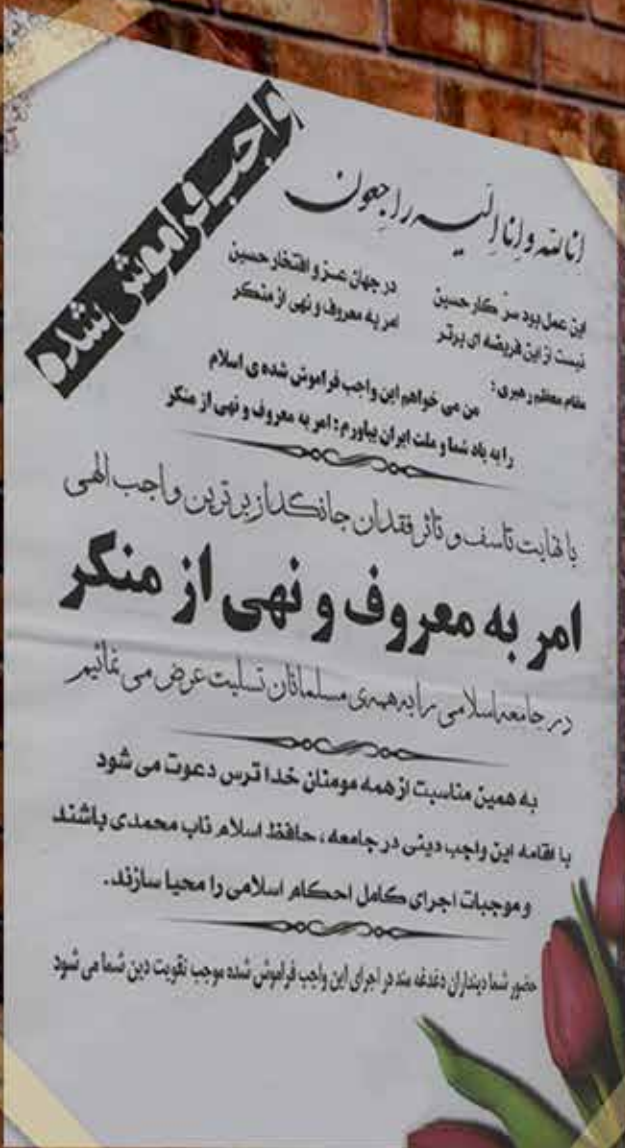 واجب فراموش شده
انا لله و انا الیه راجعون
این عمل بود سرّ کار حسین در جهان عز و افتخار حسین
نیست از این فریضه ای برتر امر به معروف و نهی از منکر
مقام معظم رهبری :
من می خواهم این واجب فراموش شده ی اسلام
را به یاد شما و ملت ایران بیاورم : امر به معروف و نهی از منکر
با نهایت تاسف و تاثر فقدان جانگداز برترین واجب الهی
امر به معروف و نهی از منکر
در جامعه اسلامی را به همه ی مسلمانان تسلیت عرض می نمائیم
به همین مناسبت از همه مومنان خدا ترس دعوت می شود
با اقامه این واجب دینی در جامعه ، حافظ اسلام ناب محمدی باشند
و موجبات اجرای کامل احکام اسلامی را محیا سازند.
حضور شما دینداران دغدغه مند در اجرای این واجب فراموش شده موجب تقویت دین شما می شود